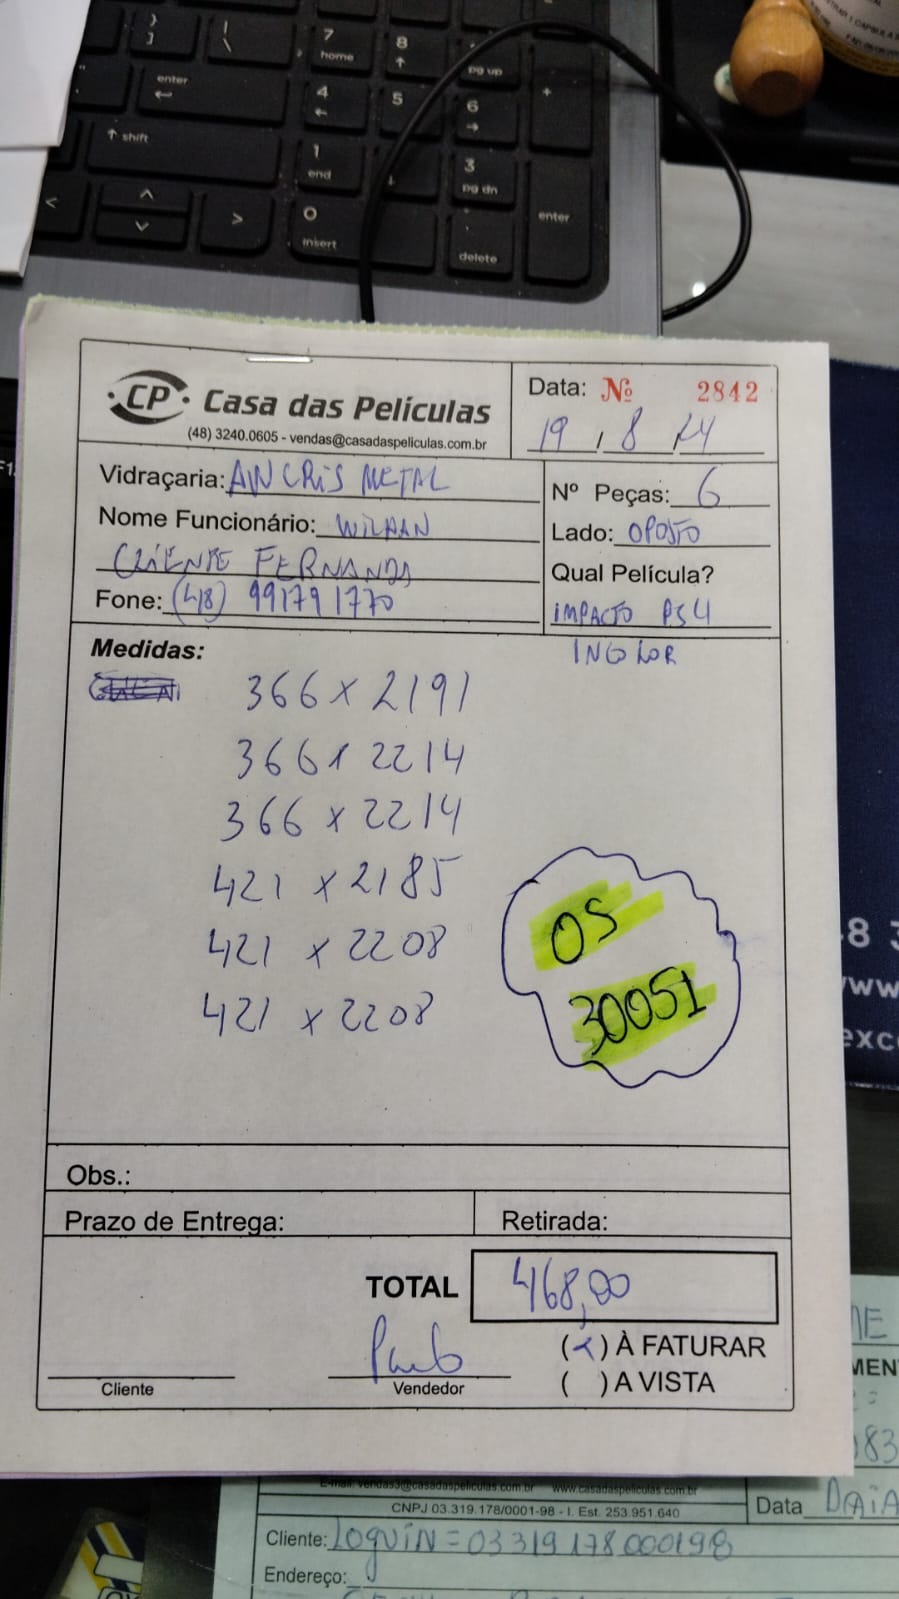 }
]
|
\
7
home
8
↑
pg up
enter
4
←
5
6
→
+
↑ shift
1
end
↓
3
pg dn
<
^
v
>
0
insert
.
delete
enter
CP Casa das Películas
(48) 3240.0605 - vendas@casadaspeliculas.com.br
Data: Nº 2842
19 / 8 / 24
Vidraçaria: AW CRIS METAL
Nome Funcionário: WILHAN
CLIENTE FERNANDA
Fone: (48) 99179 1770
Nº Peças: 6
Lado: OPOSTO
Qual Película?
IMPACTO PS4
INCOLOR
Medidas:
366 x 2191
366 x 2214
366 x 2214
421 x 2185
421 x 2208
421 x 2208
OS
30051
Obs.:
Prazo de Entrega:
Retirada:
TOTAL 468,00
Cliente
Paulo
Vendedor
(x) À FATURAR
( ) A VISTA
8 3
/ww
exc
ME
MEN
083
E-mail: vendas3@casadaspeliculas.com.br www.casadaspeliculas.com.br
CNPJ 03.319.178/0001-98 - I. Est. 253.951.640
Data DAIA
Cliente: LOGUIN = 03319178000198
Endereço: